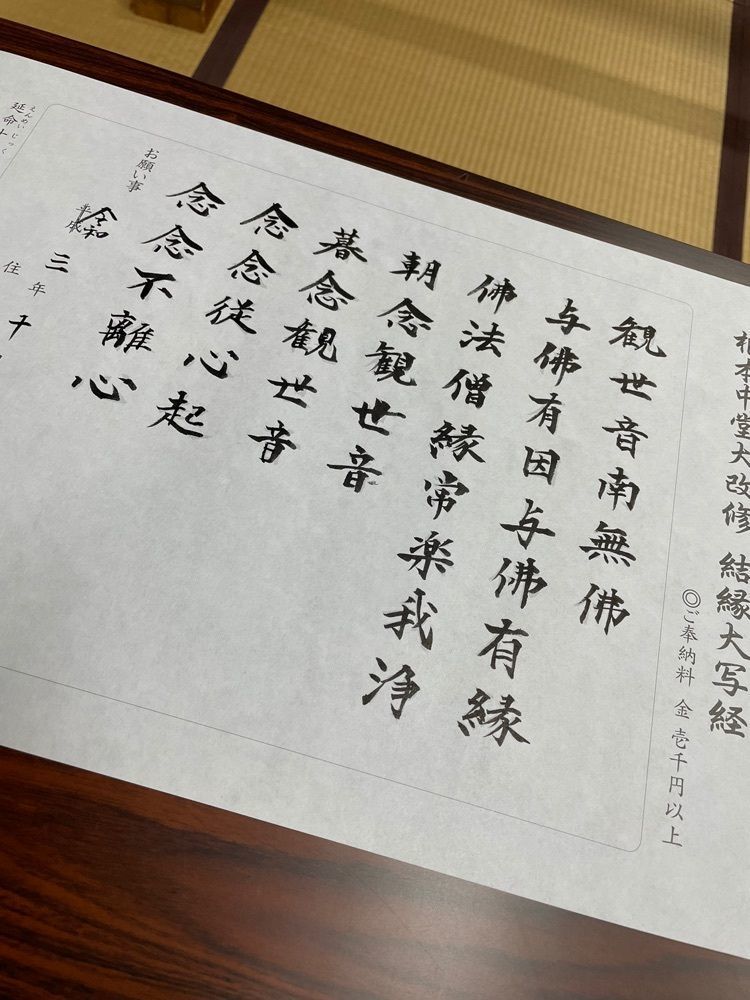 根本中堂大改修 結縁大写経
◎ご奉納料 金 壱千円以上
観世音南無佛
与佛有因与佛有縁
佛法僧縁常楽我浄
朝念観世音
暮念観世音
念念従心起
念念不離心
お願い事
令和
平成
三年
住
えんめいじっく
延命十